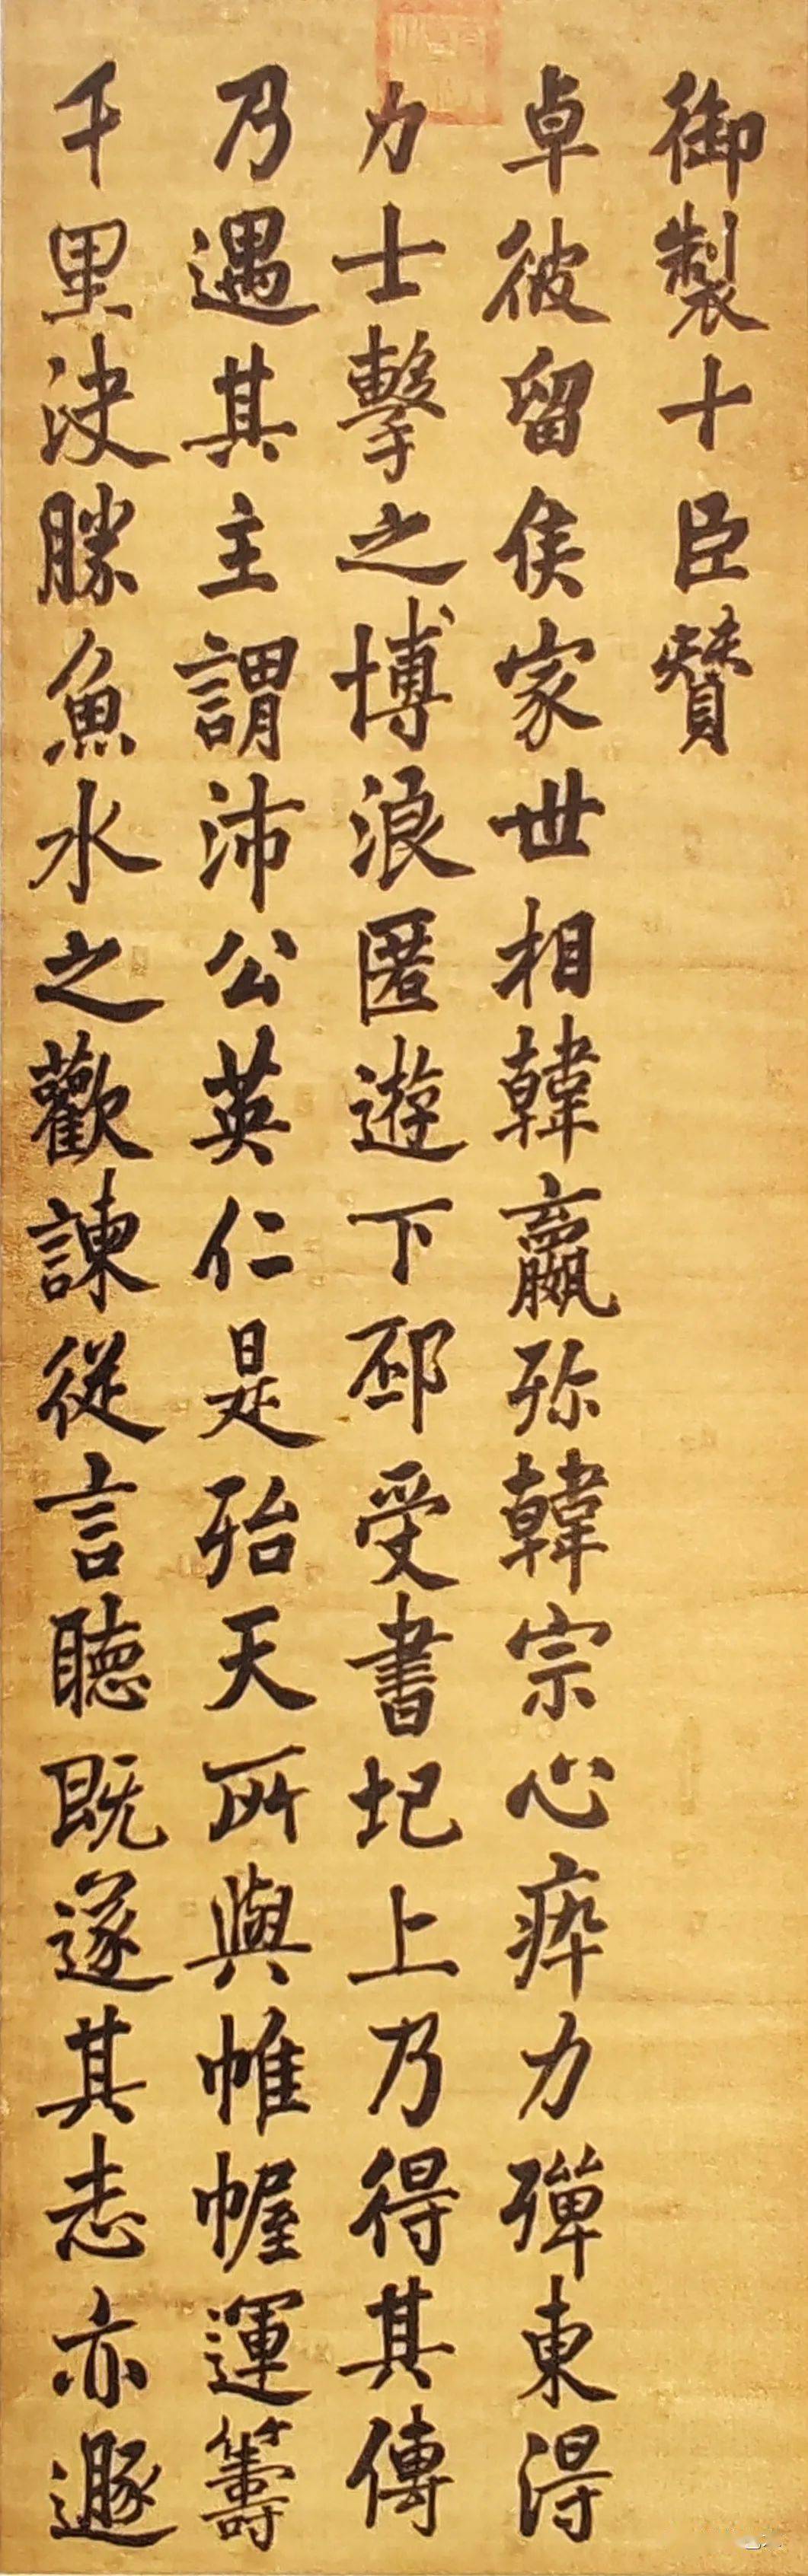 御製十臣贊
卓彼留侯家世相韓嬴殄韓宗心瘁力殫東得
力士擊之博浪匿遊下邳受書圯上乃得其傳
乃遇其主謂沛公英仁是殆天所與帷幄運籌
千里决勝魚水之歡諫從言聽既遂其志亦遯